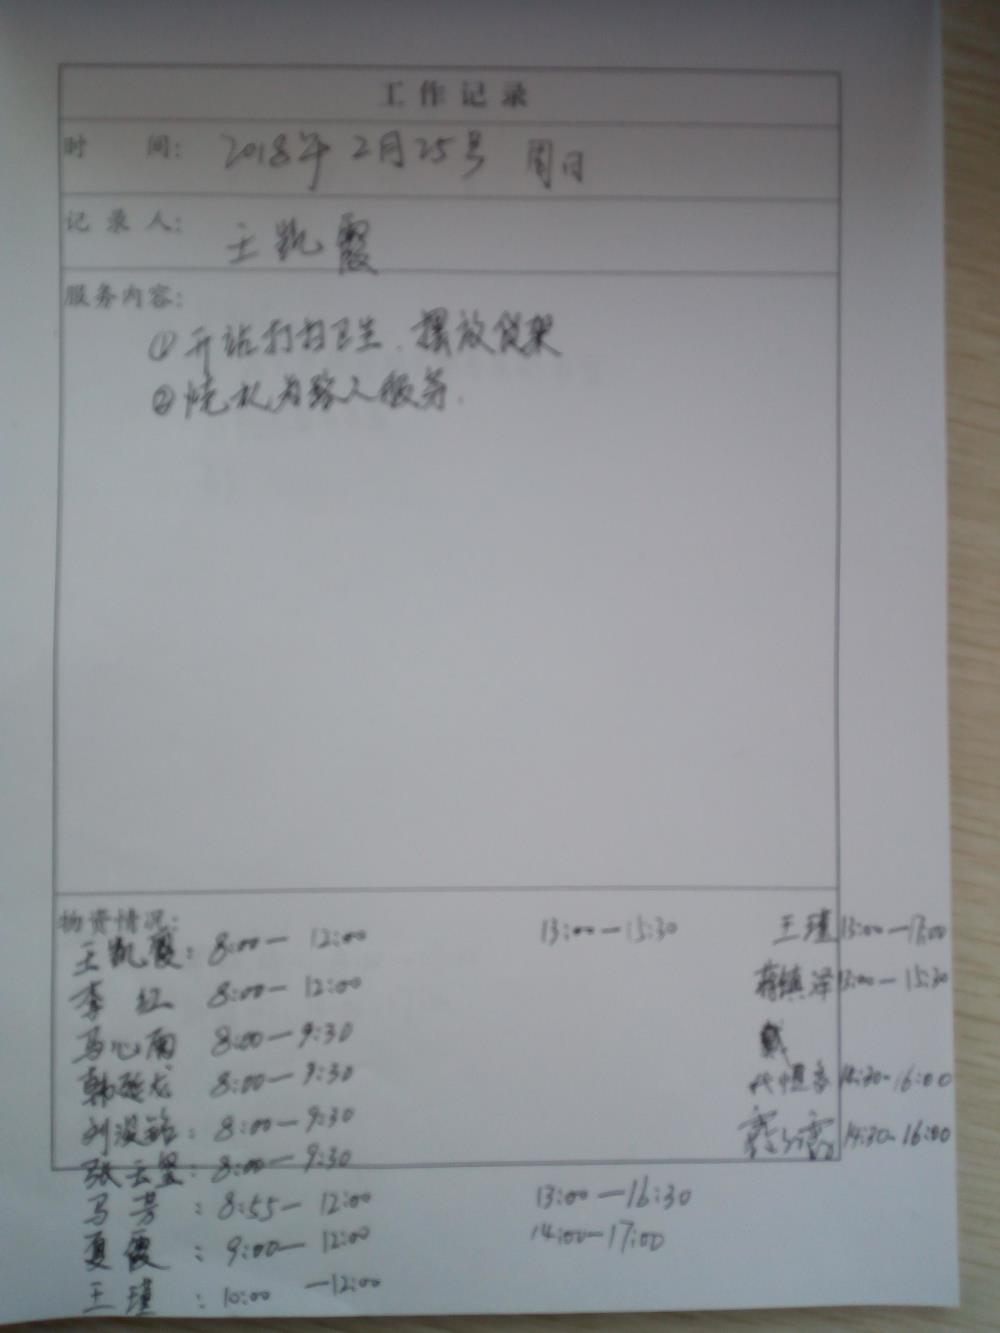 工作记录
时 间: 2018年 2月25号 周日
记录人: 王凯霞
服务内容:
①开站打扫卫生、摆放货架
②烧水为路人服务.
物资情况:
王凯霞: 8:00— 12:00 13:00—15:30 王瑾 13:00—17:00
李 红 8:00— 12:00 蒋镇泽 13:00— 15:30
马心雨 8:00—9:30
韩 龙 8:00—9:30 代恒 14:30-16:00
刘 : 8:00—9:30 14:30-16:00
张云昱: 8:00—9:30
马 芳 : 8:55— 12:00 13:00—16:30
夏 霞 : 9:00— 12:00 14:00—17:00
王 瑾 : 10:00 —12:00